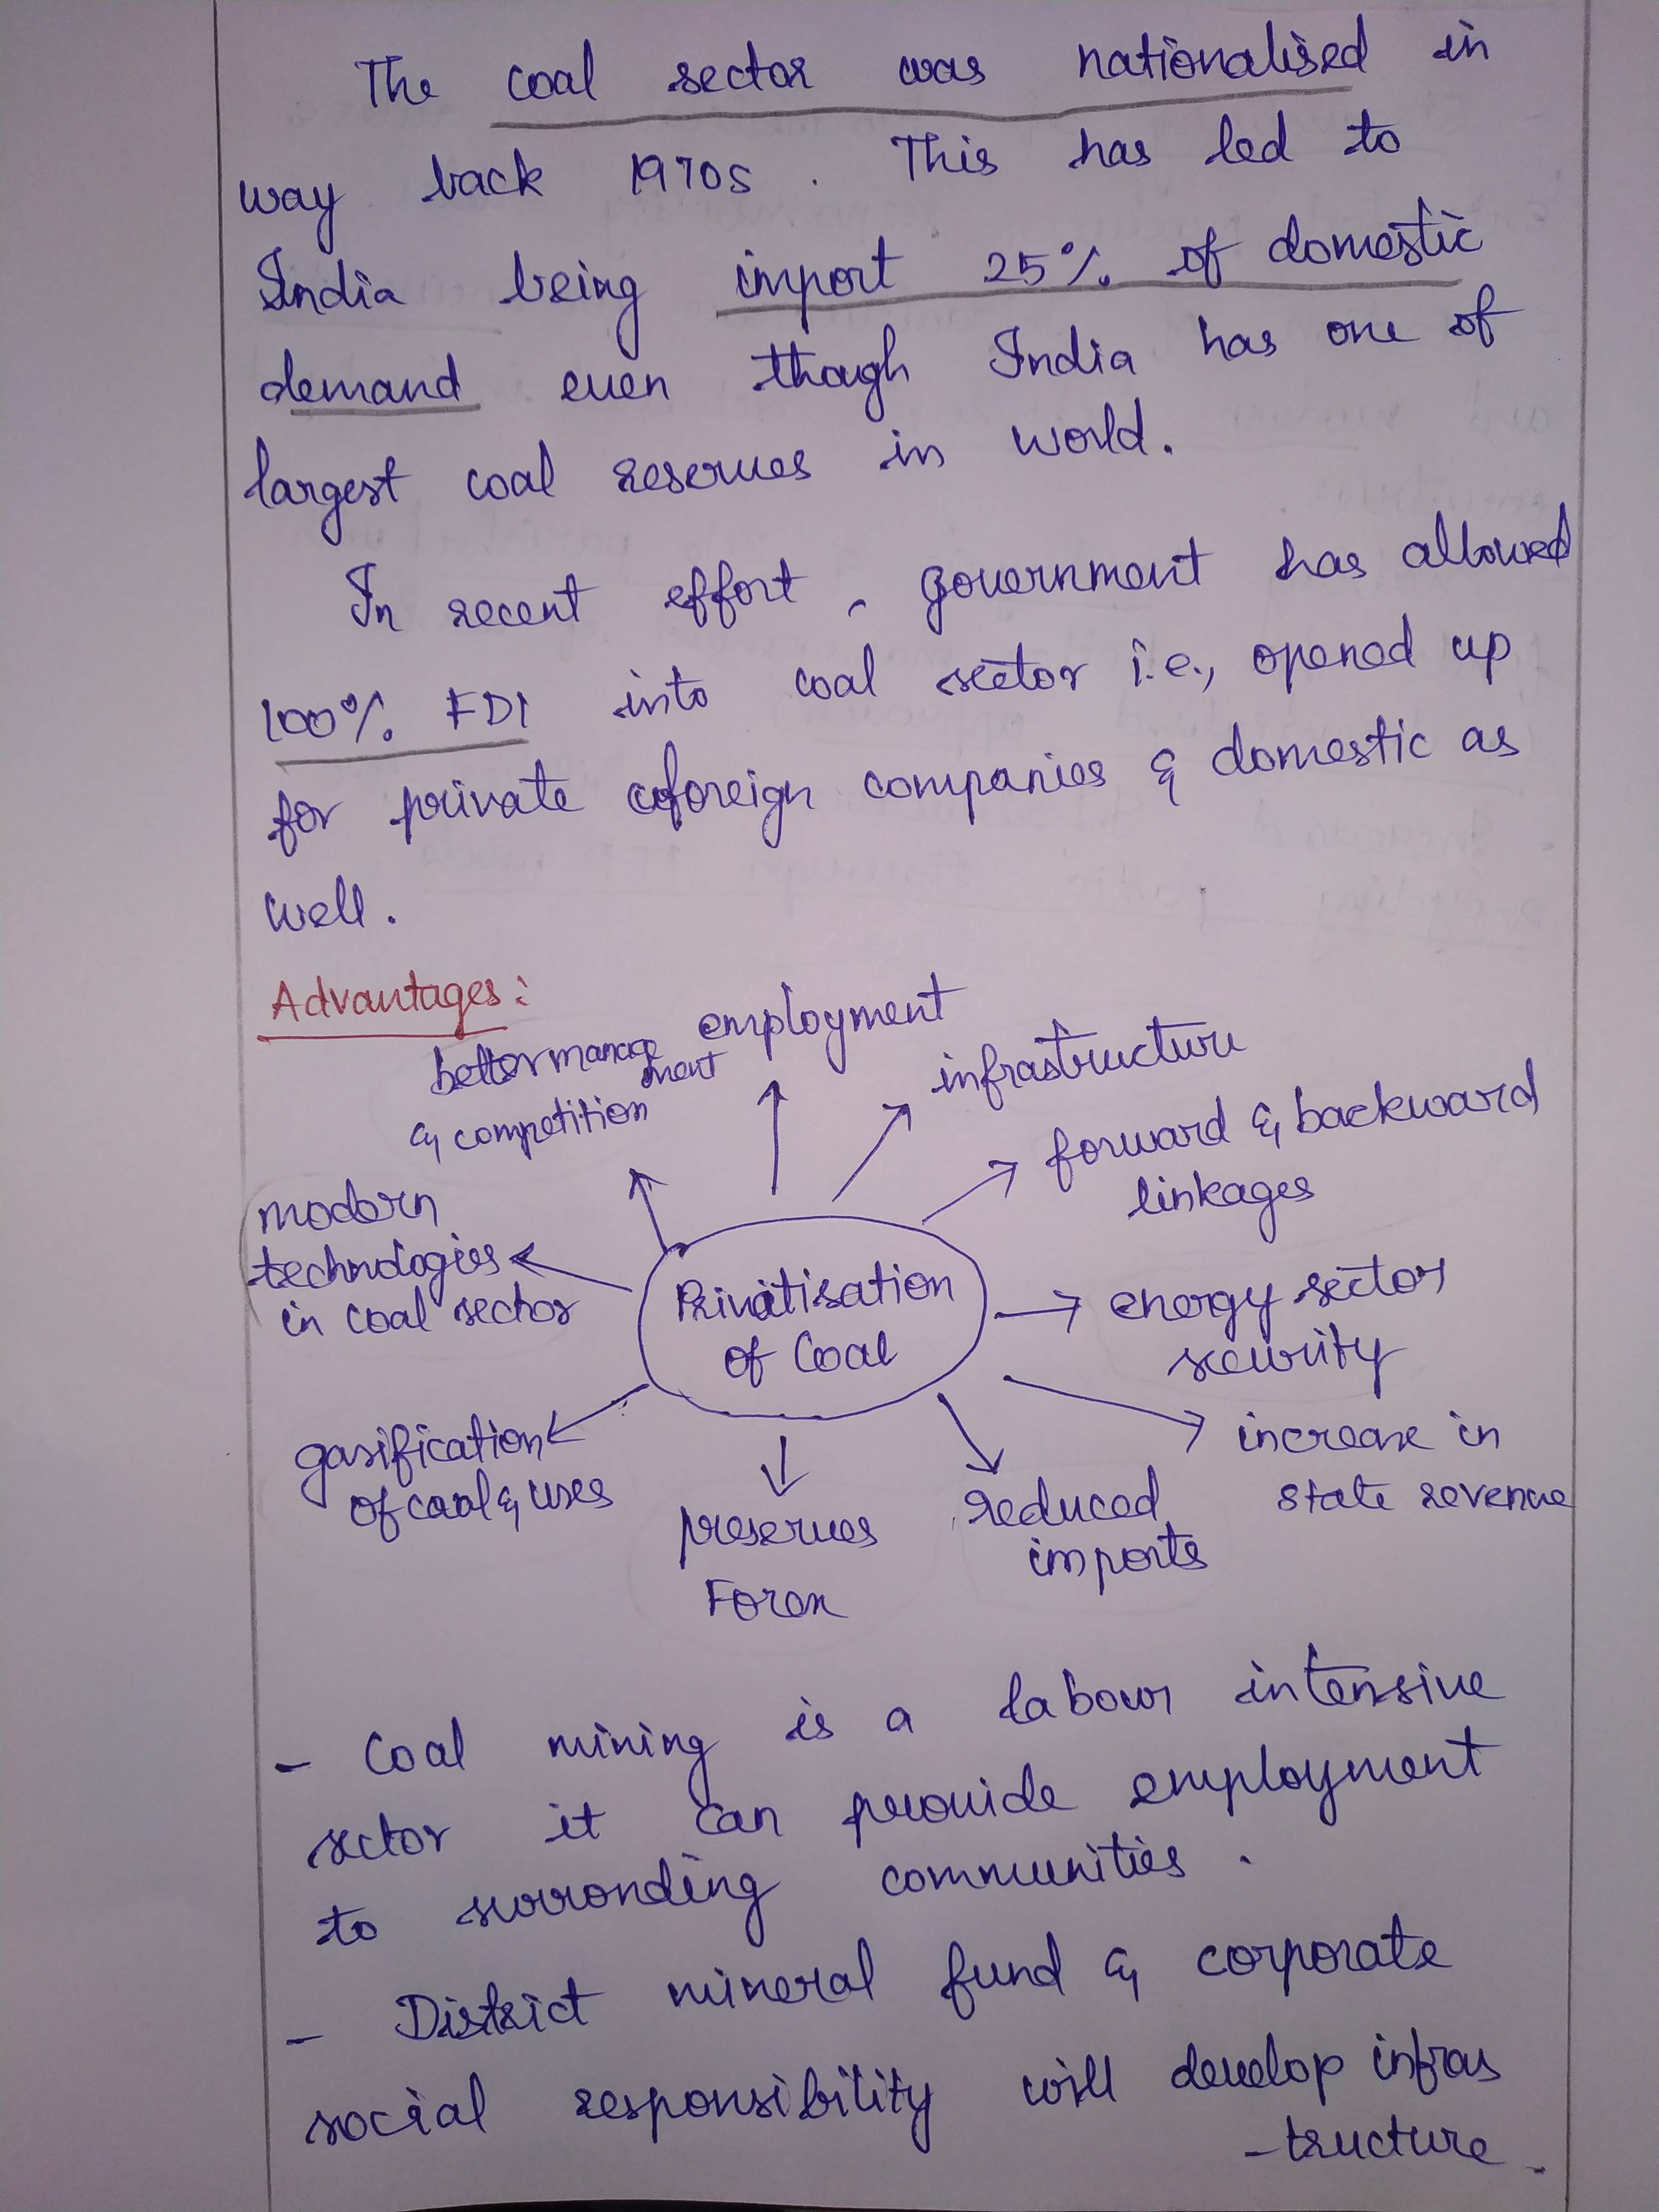 The coal sector was nationalised in
way back 1970s. This has led to
India being import 25% of domestic
demand even though India has one of
largest coal reserves in world.
In recent effort, government has allowed
100% FDI into coal sector i.e., opened up
for private foreign companies & domestic as
well.
Advantages:
better manage
ment
& competition
employment
infrastructure
forward & backward
linkages
modern
technologies
in coal sector
Privatisation
of Coal
energy sector
security
gasification
of coal & uses
preserves
Forex
reduced
imports
increase in
state revenue
- Coal mining is a labour intensive
sector it can provide employment
to surronding communities.
- District mineral fund & corporate
social responsibility will develop infras
-tructure.